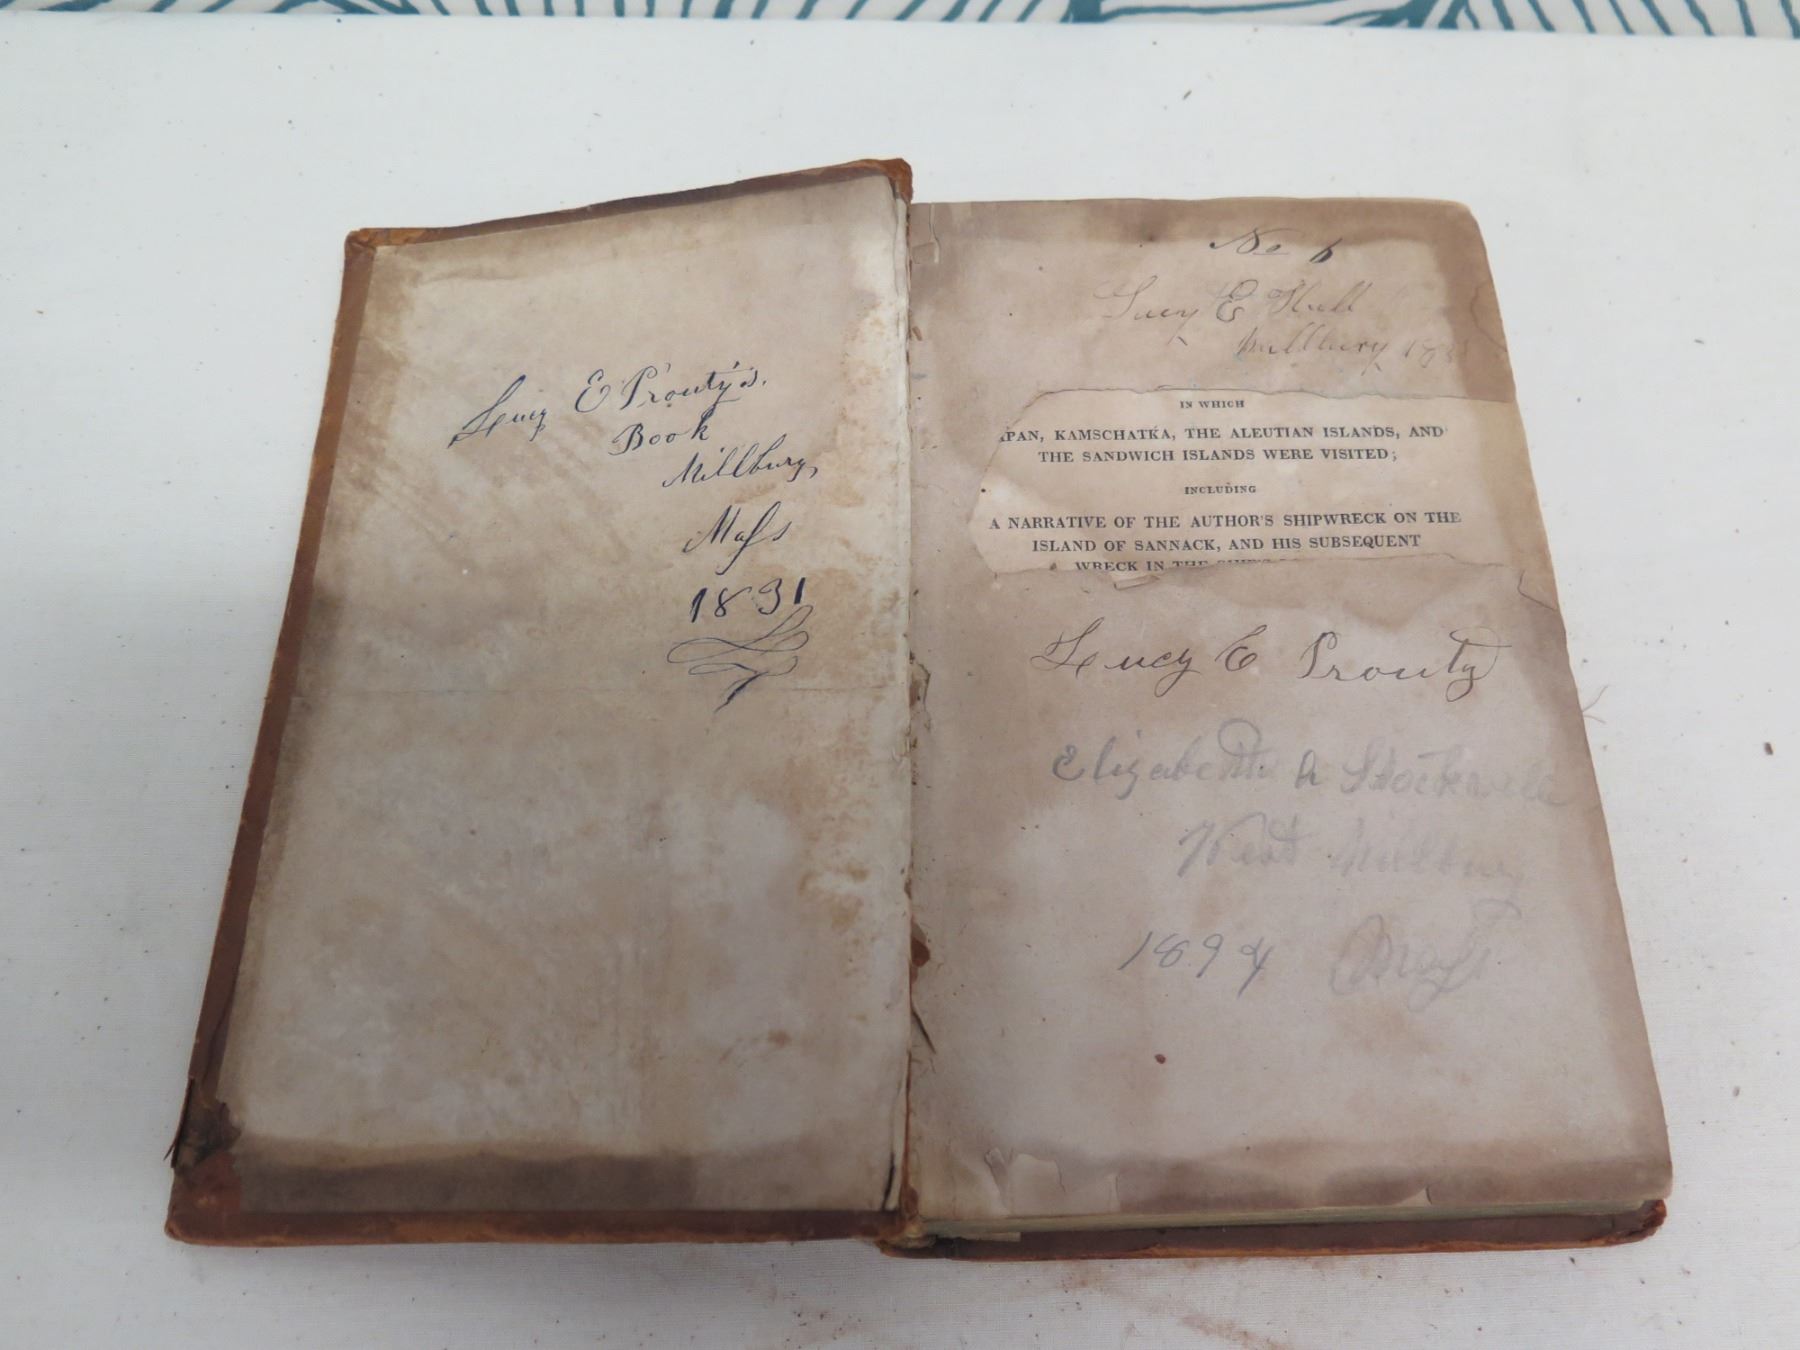 Lucy E Prouty's.
Book
Millbury,
Maſs
1831
No 6
Lucy E Hull
Millbury
IN WHICH
APAN, KAMSCHATKA, THE ALEUTIAN ISLANDS, AND
THE SANDWICH ISLANDS WERE VISITED;
INCLUDING
A NARRATIVE OF THE AUTHOR'S SHIPWRECK ON THE
ISLAND OF SANNACK, AND HIS SUBSEQUENT
WRECK IN THE
Lucy E Prouty
Elizabeth A Stockwell
West Millbury
1894 Maſs